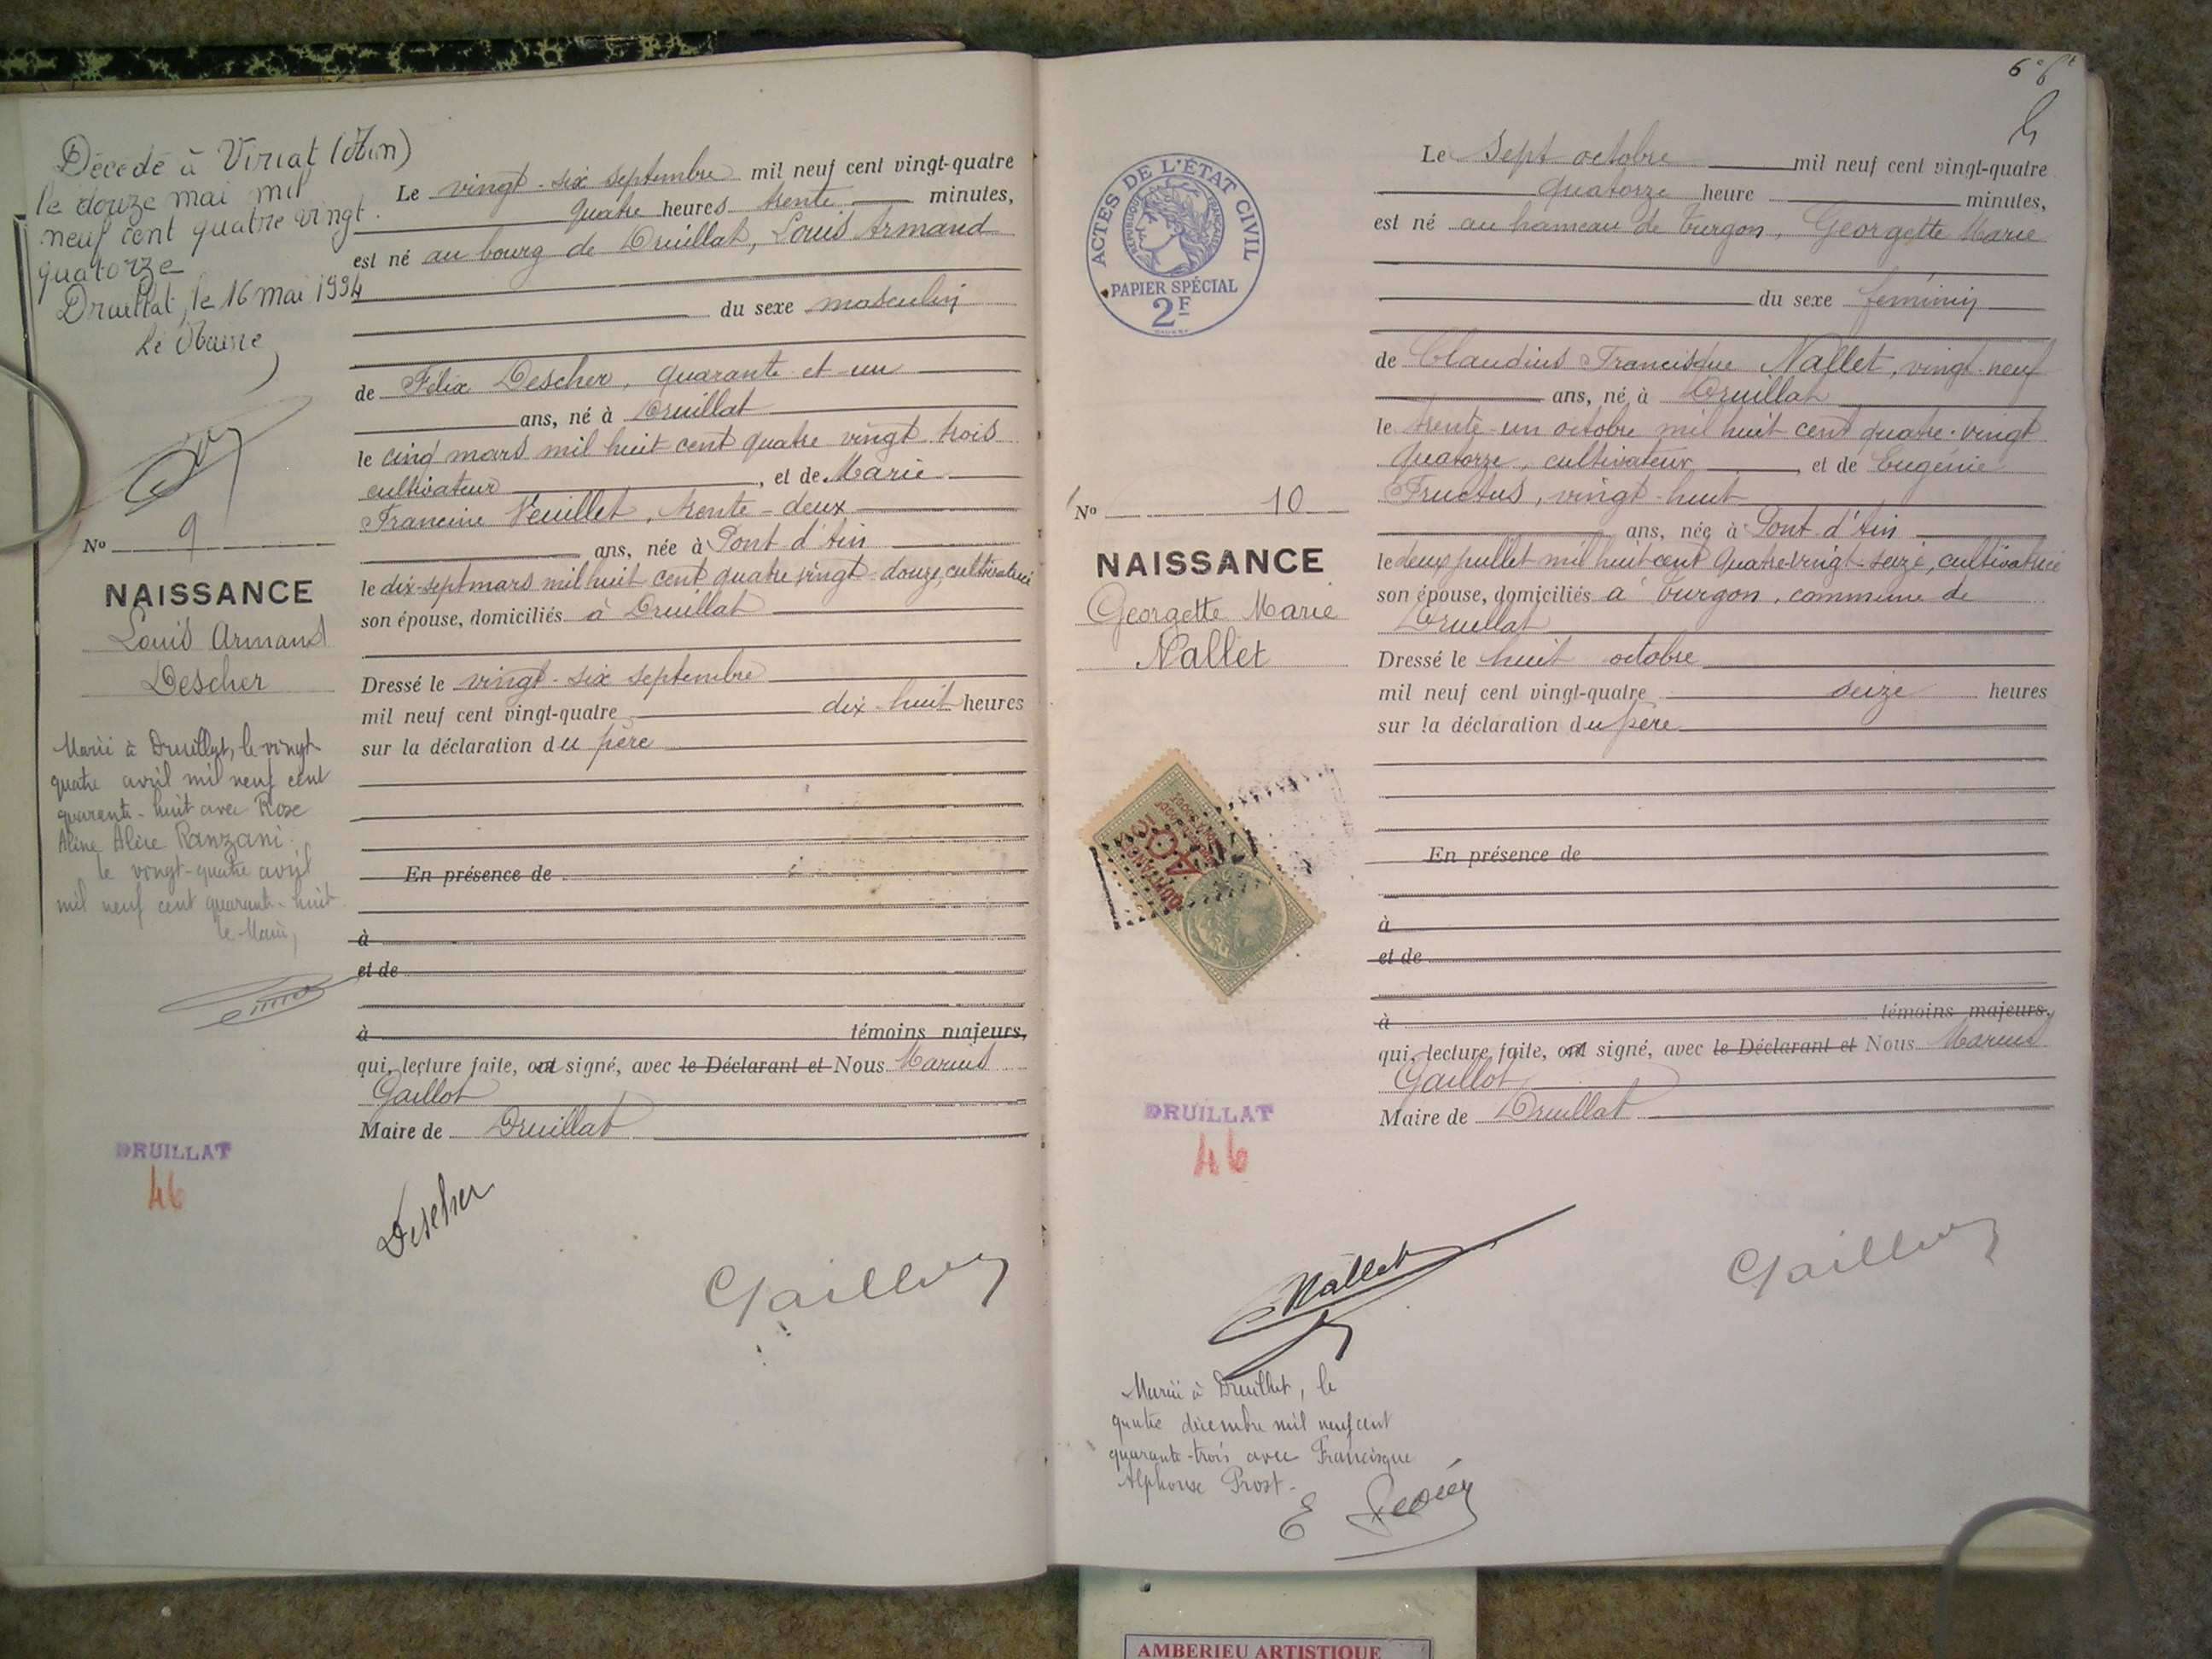 Décédé à Viriat (Ain)
le douze mai mil
neuf cent quatre vingt
quatorze
Druillat, le 16 mai 1994
Le Maire
No 9
NAISSANCE
Louis Armand
Descher
Marié à Druillat, le vingt-
quatre avril mil neuf cent
quarante-huit avec Rose
Aline Alice Ranzani.
le vingt-quatre avril
mil neuf cent quarante-huit
le Maire,
DRUILLAT
46
Le vingt-six septembre mil neuf cent vingt-quatre
quatre heures trente minutes,
est né au bourg de Druillat, Louis Armand
du sexe masculin
de Félix Descher, quarante et un
ans, né à Druillat
le cinq mars mil huit cent quatre vingt trois
cultivateur, et de Marie
Francine Veuillet, trente-deux
ans, née à Pont d'Ain
le dix-sept mars mil huit cent quatre vingt-douze, cultivatrice
son épouse, domiciliés à Druillat
Dressé le vingt-six septembre
mil neuf cent vingt-quatre dix-huit heures
sur la déclaration du père
En présence de
à
et de
à témoins majeurs,
qui, lecture faite, ont signé, avec le Déclarant et Nous Marius
Gaillot
Maire de Druillat
Descher
Gaillot
6e ft
ACTES DE L'ÉTAT CIVIL
RÉPUBLIQUE FRANÇAISE
PAPIER SPÉCIAL
2F
No 10
NAISSANCE
Georgette Marie
Nallet
DRUILLAT
46
Le sept octobre mil neuf cent vingt-quatre
quatorze heure minutes,
est né au hameau de Turgon, Georgette Marie
du sexe féminin
de Claudius Francisque Nallet, vingt-neuf
ans, né à Druillat
le trente-un octobre mil huit cent quatre-vingt
quatorze, cultivateur, et de Eugénie
Fructus, vingt-huit
ans, née à Pont d'Ain
le deux juillet mil huit cent quatre-vingt-seize, cultivatrice
son épouse, domiciliés à Turgon, commune de
Druillat
Dressé le huit octobre
mil neuf cent vingt-quatre seize heures
sur la déclaration du père
En présence de
à
et de
à témoins majeurs,
qui, lecture faite, ont signé, avec le Déclarant et Nous Marius
Gaillot
Maire de Druillat
Nallet
Gaillot
Marié à Druillat, le
quatre décembre mil neuf cent
quarante-trois avec Francisque
Alphonse Prost.
AMBERIEU ARTISTIQUE